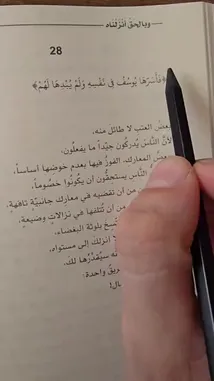 وبالحق أنزلناه
28
﴿فَأَسَرَّهَا يُوسُفُ فِي نَفْسِهِ وَلَمْ يُبْدِهَا لَهُمْ﴾
بعضُ العتب لا طائل منه،
لأنَّ النَّاسَ يُدركون جيِّداً ما يفعلُون،
المعارك، الفوزُ فيها بعدم خوضها أساساً،
النَّاس يستحقُّون أن يكُونُوا خصُوماً،
من أن تقضيه في معارك جانبيَّة تافهةٍ
من أن تُتلفها في نزالاتٍ وضيعةٍ
بلوثة البغضاء،
أنزلك إلى مستواه
سيُقدِّرُها لك
واحدة